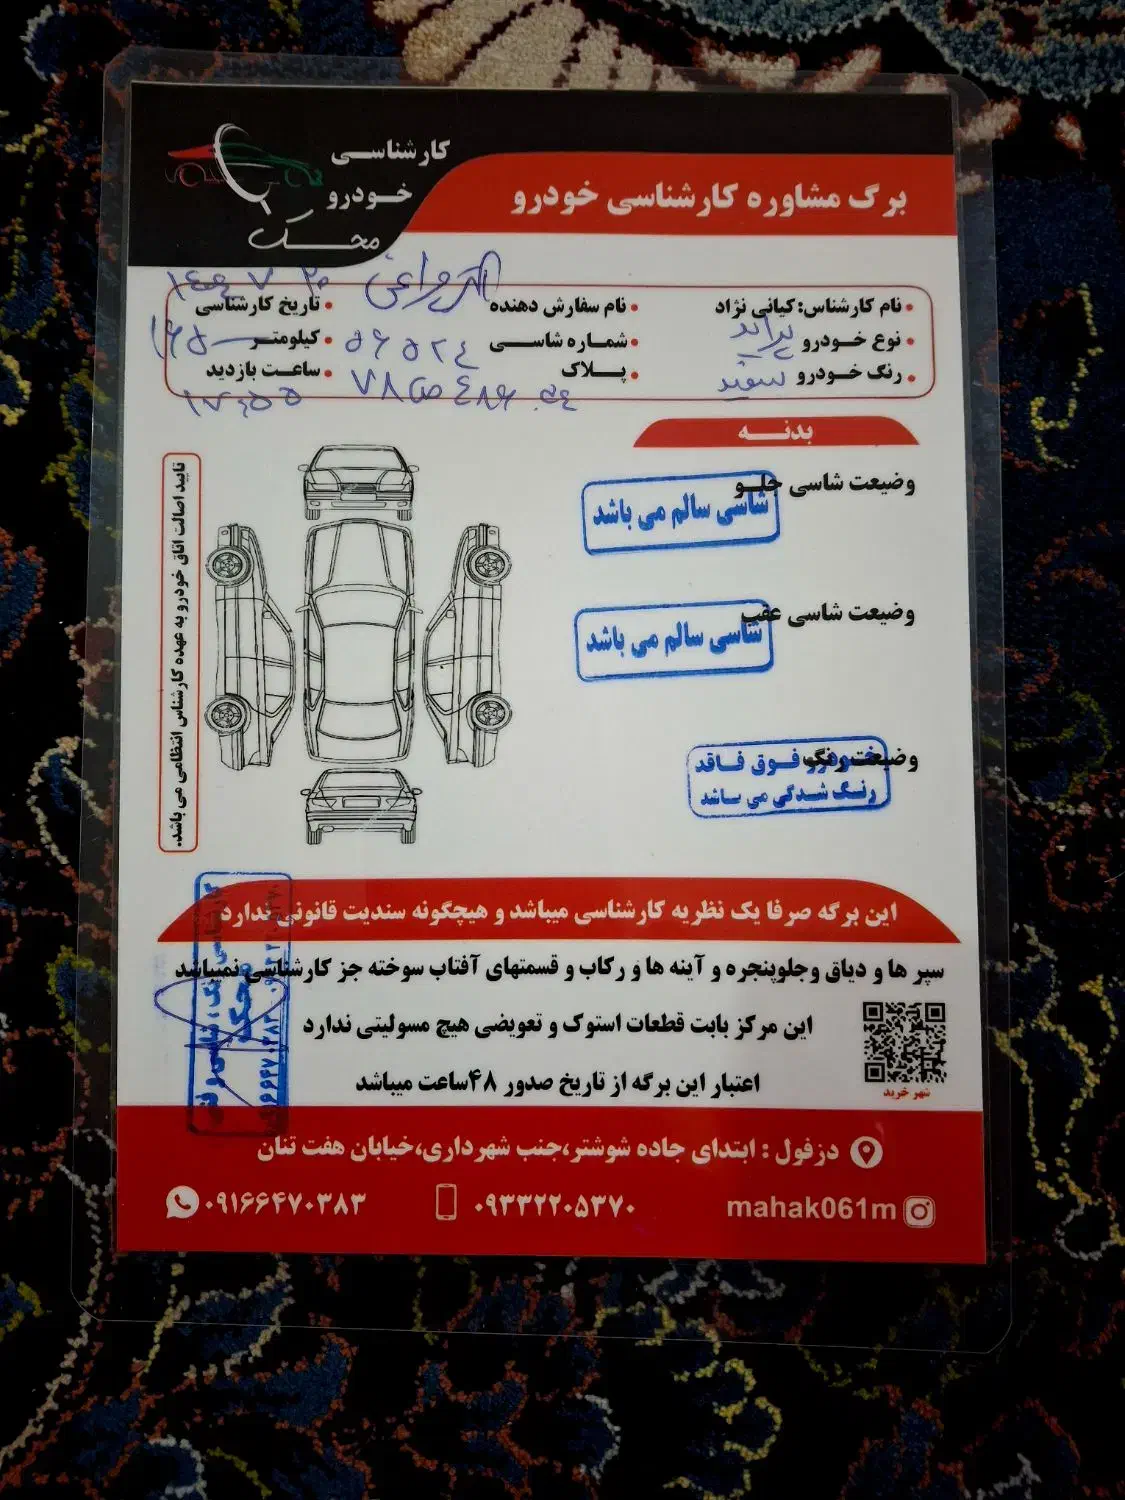 کارشناسی
خودرو
محک
برگ مشاوره کارشناسی خودرو
• نام کارشناس: کیانی نژاد
• نام سفارش دهنده
• تاریخ کارشناسی
• نوع خودرو پراید
• شماره شاسی ۵۶۵۲۴
• کیلومتر
• رنگ خودرو سفید
• پلاک
• ساعت بازدید ۱۷:۵۵
بدنه
وضیعت شاسی جلو
شاسی سالم می باشد
وضیعت شاسی عقب
شاسی سالم می باشد
وضیعت رنگ
خودرو فوق فاقد
رنگ شدگی می باشد
تایید اصالت اتاق خودرو به عهده کارشناس انتظامی می باشد.
این برگه صرفا یک نظریه کارشناسی میباشد و هیچگونه سندیت قانونی ندارد
سپر ها و دیاق وجلوپنجره و آینه ها و رکاب و قسمتهای آفتاب سوخته جز کارشناسی نمیباشد
این مرکز بابت قطعات استوک و تعویضی هیچ مسولیتی ندارد
اعتبار این برگه از تاریخ صدور ۴۸ساعت میباشد
شهر خرید
دزفول : ابتدای جاده شوشتر،جنب شهرداری،خیابان هفت تنان
mahak061m
۰۹۳۳۲۲۰۵۳۷۰
۰۹۱۶۶۴۷۰۳۸۳